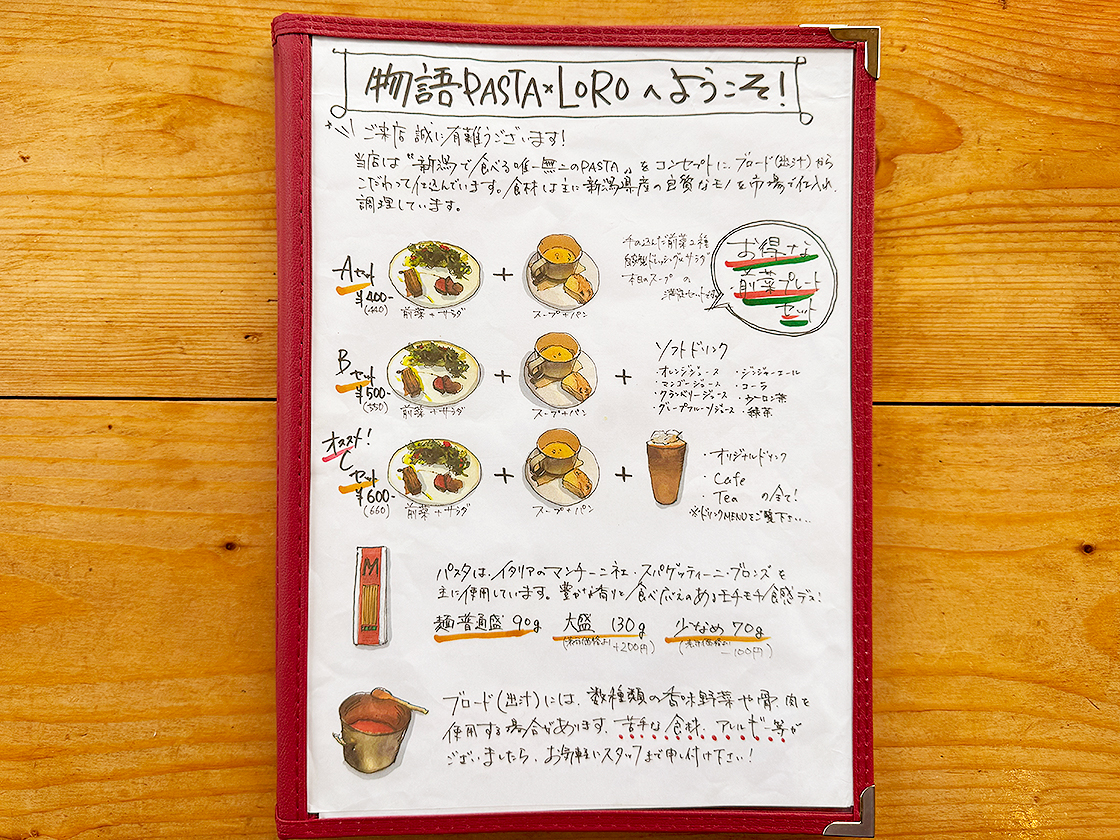 物語PASTA×LOROへようこそ!
ご来店 誠に有難うございます!
当店は〝新潟で食べる唯一無二のPASTA〟をコンセプトに、ブロード(出汁)から
こだわって仕込んでいます。食材は主に新潟県産の良質なモノを市場で仕入れ、
調理しています。
Aセット
¥400-
(440)
前菜+サラダ
+
スープ+パン
手の込んだ前菜2種
自家製ドレッシングのサラダ
本日のスープの
満足セットです
お得な
前菜プレート
セット
Bセット
¥500-
(550)
前菜+サラダ
+
スープ+パン
+
ソフトドリンク
・オレンジジュース ・ジンジャーエール
・マンゴージュース ・コーラ
・クランベリージュース ・ウーロン茶
・グレープフルーツジュース ・緑茶
オススメ!
Cセット
¥600-
(660)
前菜+サラダ
+
スープ+パン
+
・オリジナルドリンク
・Cafe
・Tea の全て!
※ドリンクMENUをご覧下さい...
M
パスタは、イタリアのマンチーニ社・スパゲッティーニ・ブロンズを
主に使用しています。豊かな香りと食べ応えのあるモチモチ食感デス!
麺普通盛 90g 大盛 130g 少なめ 70g
(表示価格より +200円) (表示価格より -100円)
ブロード(出汁)には、数種類の香味野菜や骨、肉を
使用する場合があります。苦手な食材、アレルギー等が
ございましたら、お気軽にスタッフまで申し付け下さい!